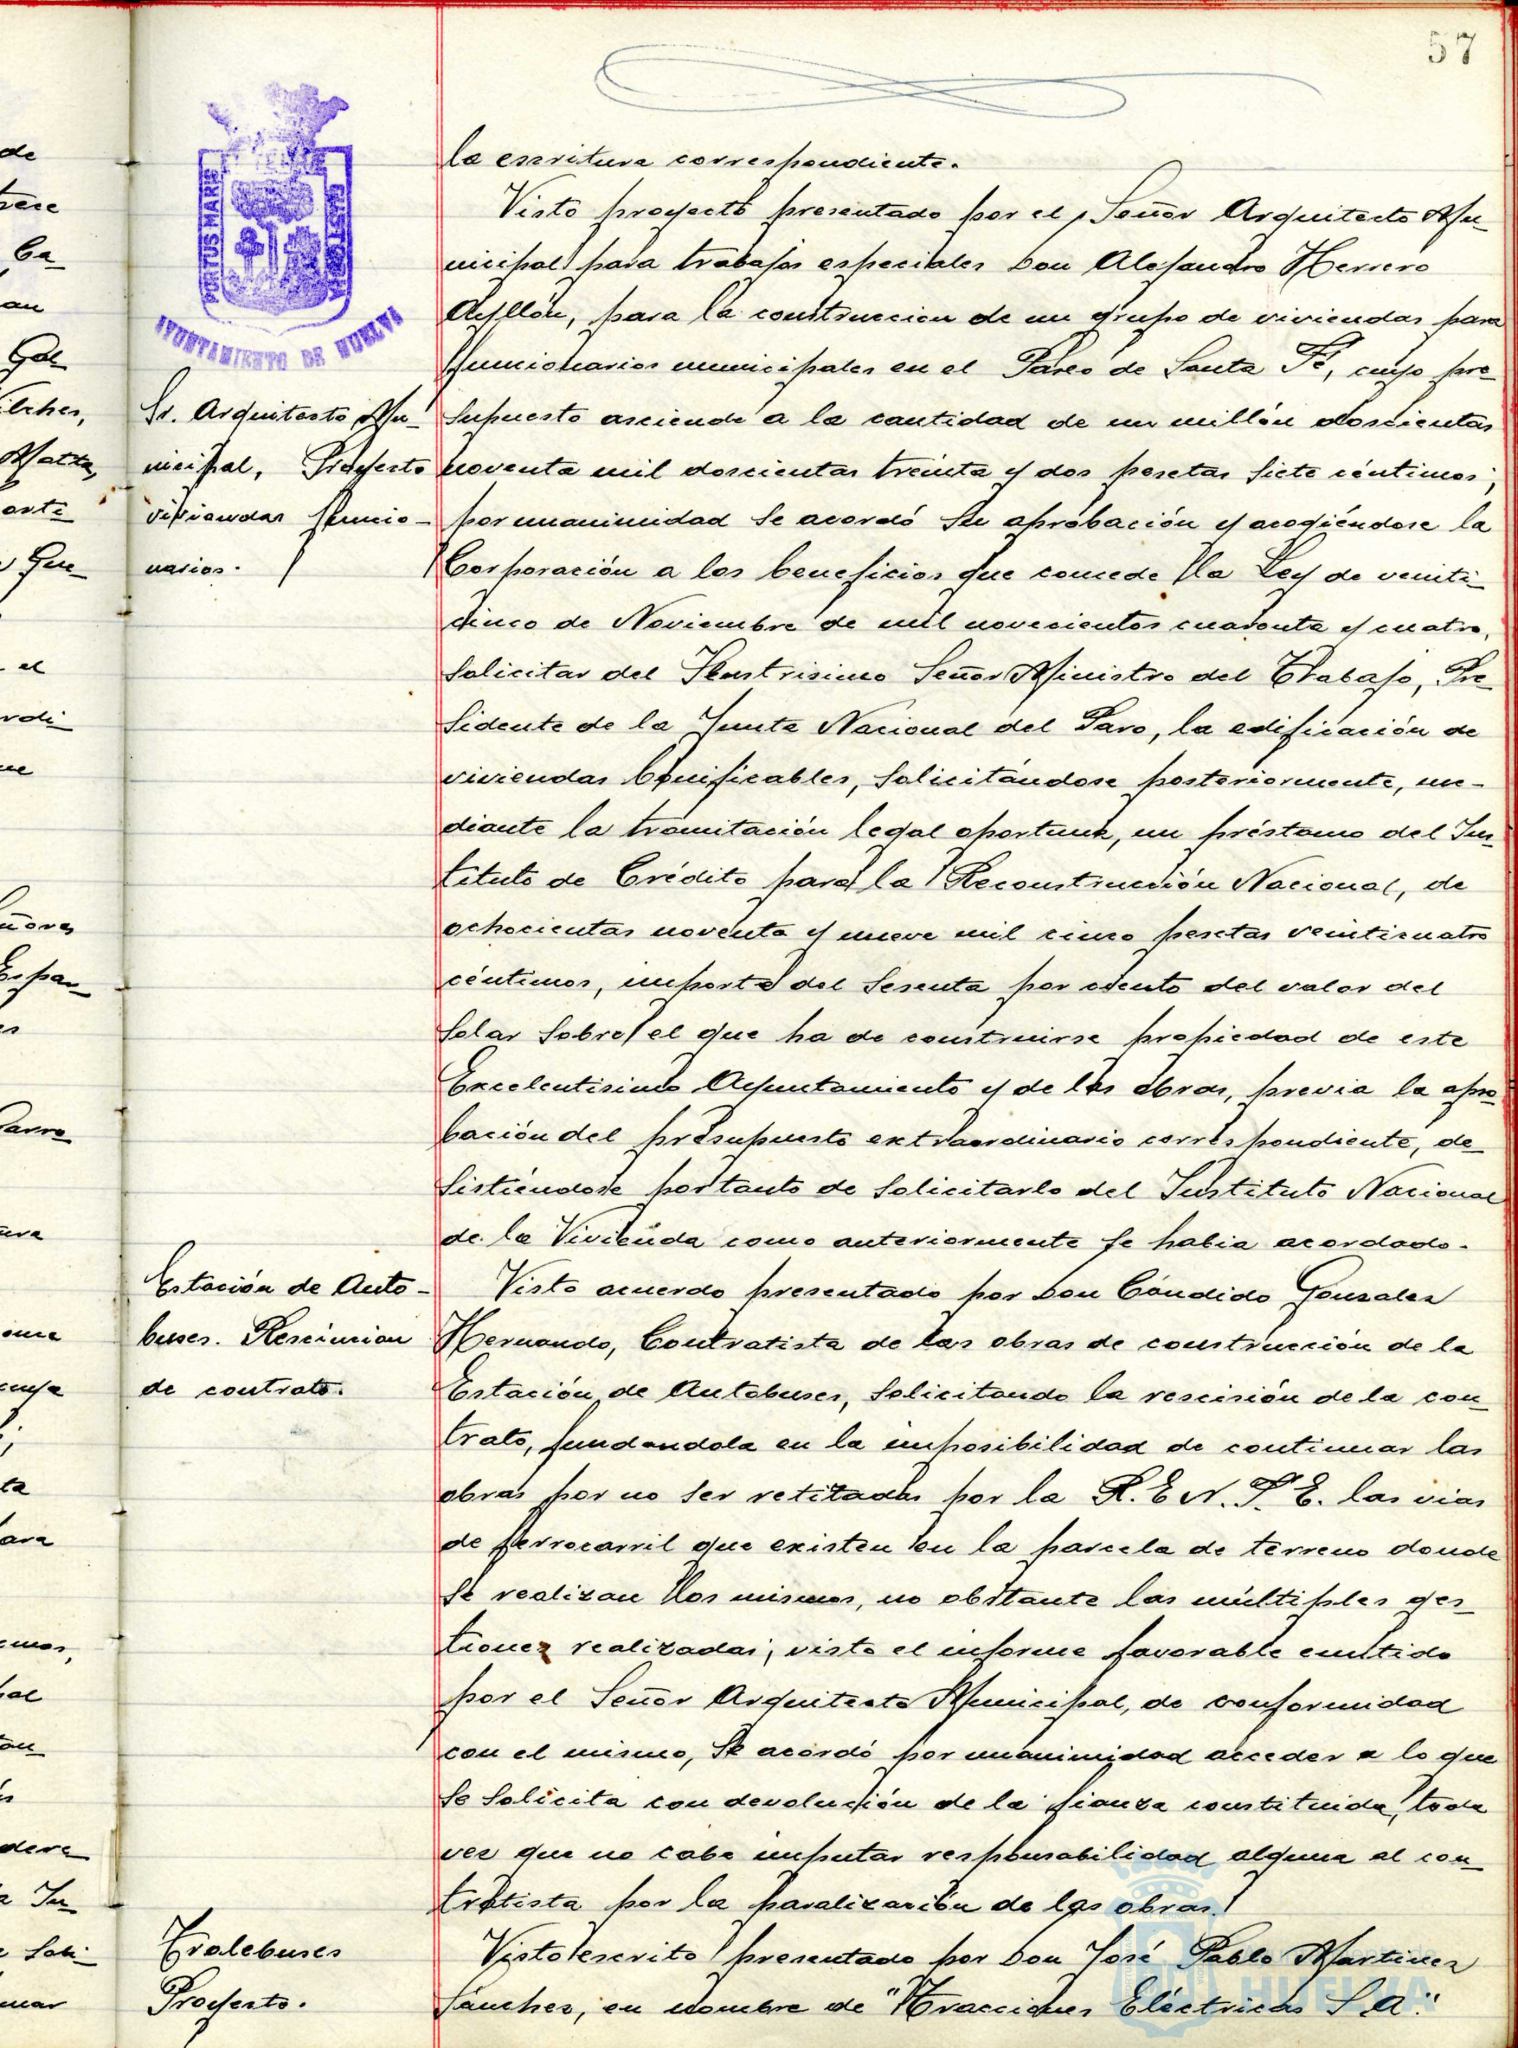 57
PORTUS MARIS
ET TERRAE
CUSTODIA
AYUNTAMIENTO DE HUELVA
la escritura correspondiente.
Visto proyecto presentado por el Señor Arquitecto Mu-
nicipal para trabajos especiales Don Alejandro Herrero
Ayllón, para la construccion de un grupo de viviendas para
funcionarios municipales en el Paseo de Santa Fé, cuyo pre-
supuesto asciende a la cantidad de un millón doscientas
noventa mil doscientas treinta y dos pesetas siete céntimos;
por unanimidad se acordó su aprobación y acogiéndose la
Corporación a los beneficios que concede la Ley de veinti-
cinco de Noviembre de mil novecientos cuarenta y cuatro,
solicitar del Ilustrisimo Señor Ministro del Trabajo, Pre-
sidente de la Junta Nacional del Paro, la edificación de
viviendas bonificables, solicitándose posteriormente, me-
diante la tramitación legal oportuna, un préstamo del Ins-
tituto de Crédito para la Reconstrucción Nacional, de
ochocientas noventa y nueve mil cinco pesetas veinticuatro
céntimos, importe del sesenta por ciento del valor del
solar sobre el que ha de construirse propiedad de este
Excelentisimo Ayuntamiento y de las obras, previa la apro-
bación del presupuesto extraordinario correspondiente, de-
sistiéndose por tanto de solicitarlo del Instituto Nacional
de la Vivienda como anteriormente se habia acordado.
Visto acuerdo presentado por Don Cándido Gonzalez
Hernando, Contratista de las obras de construcción de la
Estación de Autobuses, solicitando la rescisión de la con-
trato, fundandola en la imposibilidad de continuar las
obras por no ser retitadas por la R.E.N.F.E. las vias
de ferrocarril que existen en la parcela de terreno donde
se realizan los mismos, no obstante las múltiples ges-
tiones realizadas; visto el informe favorable emitido
por el Señor Arquitecto Municipal, de conformidad
con el mismo, se acordó por unanimidad acceder a lo que
se solicita con devolución de la fianza constituida, toda
vez que no cabe imputar responsabilidad alguna al con-
tratista por la paralización de las obras.
Visto escrito presentado por Don José Pablo Martinez
Sánchez, en nombre de "Tracciones Eléctricas S.A."
Sr. Arquitecto Mu-
nicipal, Proyecto
viviendas funcio-
narios.
Estación de Auto-
buses. Rescincion
de contrato.
Trolebuses
Proyecto.
de
Ca-
an
Gal-
Vilches,
Matta,
Gue-
el
Espar-
mos,
HUELVA